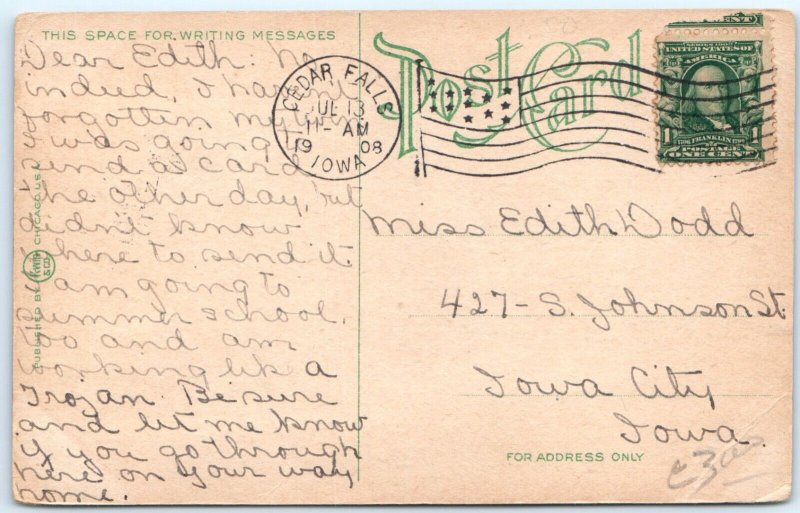 THIS SPACE FOR WRITING MESSAGES
Dear Edith: No
indeed, I haven't
forgotten my
I was going
send a card
the other day, but
didn't know
where to send it
I am going to
summer school,
too and am
working like a
Trojan. Be sure
and let me know
if you go through
here on your way
home.
PUBLISHED BY
CHICAGO, U.S.
Post Card
CEDAR FALLS
JUL 13
11-AM
1908
IOWA
SERIES 1902
UNITED STATES OF
AMERICA
1 FRANKLIN 1
POSTAGE
ONE CENT
Miss Edith Dodd
427- S. Johnson St.
Iowa City,
Iowa.
FOR ADDRESS ONLY